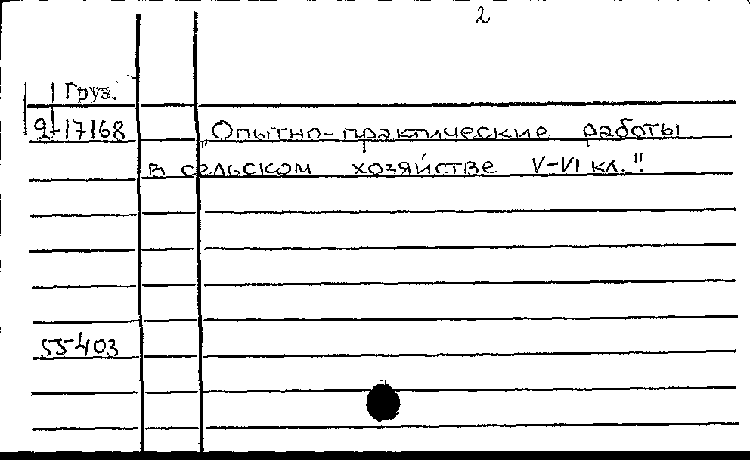 2
Груз.
2-17168
„Опытно-практические работы
в сельском хозяйстве V-VI кл."
55403